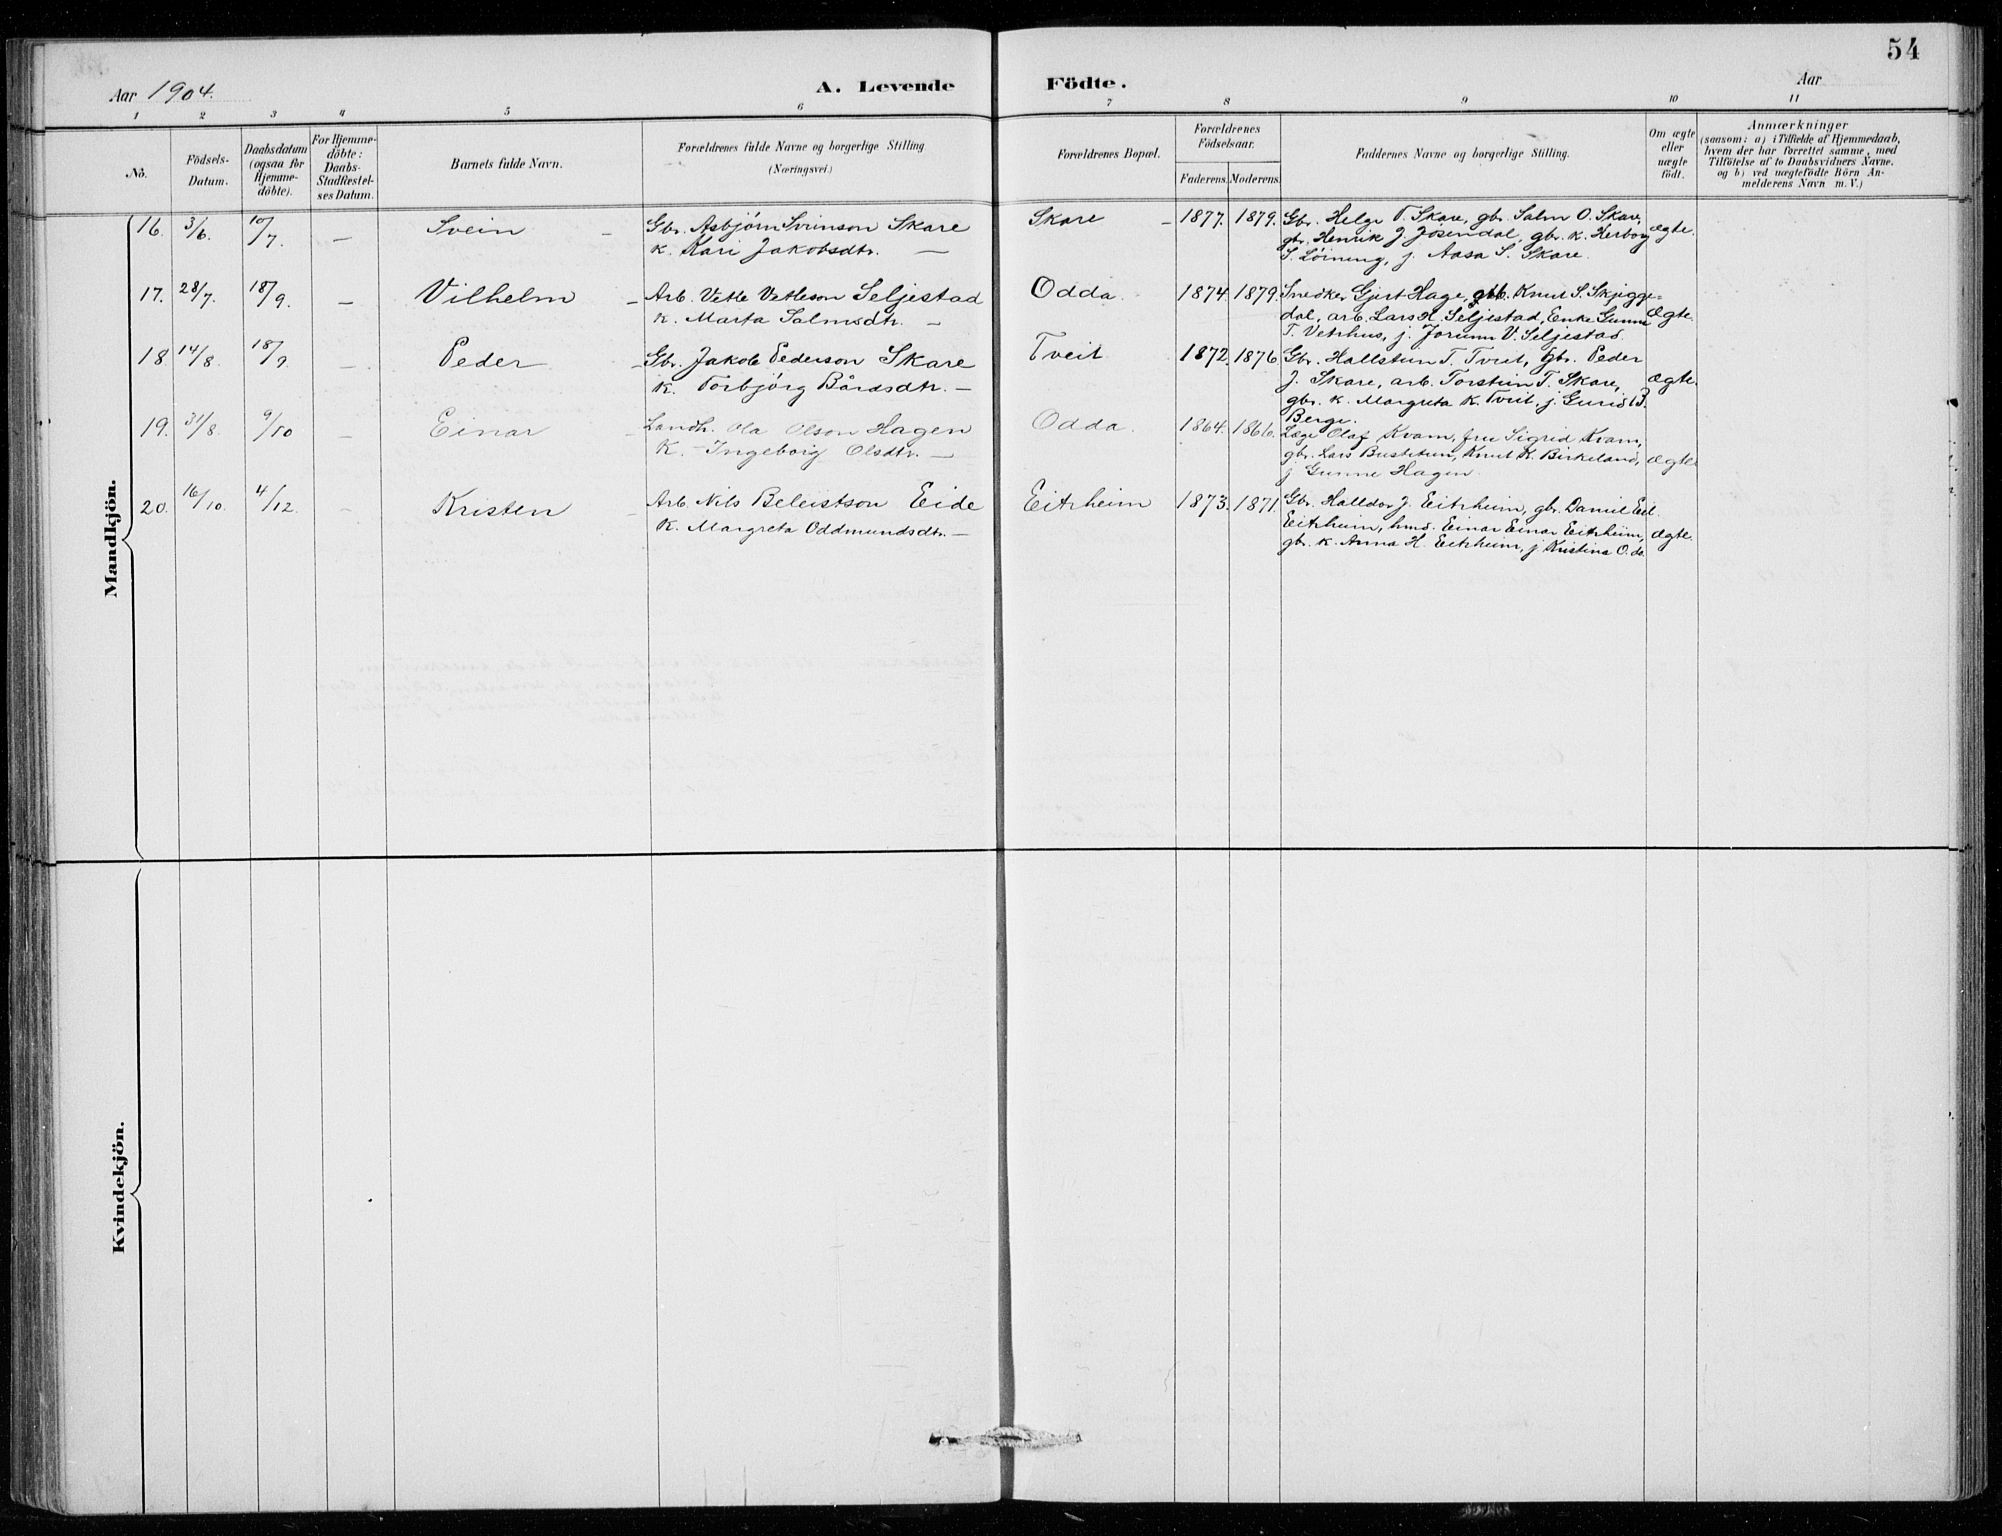 54
Aar 1904.
A. Levende Födte.
Aar
1 2 3 4 5 6 7 8 9 10 11
No.
Födsels-Datum.
Daabsdatum (ogsaa for Hjemmedöbte).
For Hjemmedöbte: Daabs-Stadfæstelses Datum.
Barnets fulde Navn.
Forældrenes fulde Navne og borgerlige Stilling
(Næringsvei.)
Forældrenes Bopæl.
Forældrenes Födselsaar.
Faderens. Moderens.
Faddernes Navne og borgerlige Stilling.
Om ægte eller uægte födt.
Anmærkninger
(saasom: a) i Tilfælde af Hjemmedaab,
hvem der har forrettet samme, med
Tilföielse af to Daabsvidners Navne.
og b) ved uægtefödte Börn An-
melderens Navn m. V.)
Mandkjön.
16. 3/6. 10/7. — Svein — Gbr. Asbjørn Svinson Skare
k. Kari Jakobsdtr. —
Skare — 1877. 1879. Gbr. Helge T. Skare, gbr. Salm O. Skare,
gbr. Henrik J. Jösendal, gbr. k. Herborg
S. Löining, j. Aasa S. Skare.
ægte.
17. 28/7. 18/9. — Vilhelm — Arb. Vetle Vetleson Seljestad
k. Marta Salmsdtr. —
Odda. 1874. 1879. Snedker Gjert Hage, gbr. Knut S. Skjegge=
dal, arb. Lars H. Seljestad, Enke Gunna
T. Vetrhus, j. Jorunn V. Seljestad.
Ægte.
18 14/8. 18/9. — Peder — Gbr. Jakob Pederson Skare
k. Torbjörg Bårdsdtr. —
Tveit 1872. 1876 Gbr. Hallstein T. Tveit, gbr. Peder
J. Skare, arb. Torstein T. Skare,
gbr. k. Margreta K. Tveit, j Gurid B.
Berge.
Ægte.
19. 31/8. 9/10 — Einar — Landh. Ola Olson Hagen
K. Ingeborg Olsdtr. —
Odda. 1864. 1866. Læge Olaf Kvam, fru Sigrid Kvam,
gbr. Lars Bustetun, Knut K. Birkeland,
j Gunne Hagen.
ægte
20. 16/10. 4/12. — Kristen — Arb. Nils Beleistson Eide
K. Margreta Oddmundsdtr. —
Eitrheim 1873. 1871. Gbr. Halldor J. Eitrheim, gbr. Daniel Eil.
Eitrheim, hmd. Einar Einar Eitrheim,
gbr. k. Anna H. Eitrheim, j Kristina O. do.
ægte.
Kvindekjön.